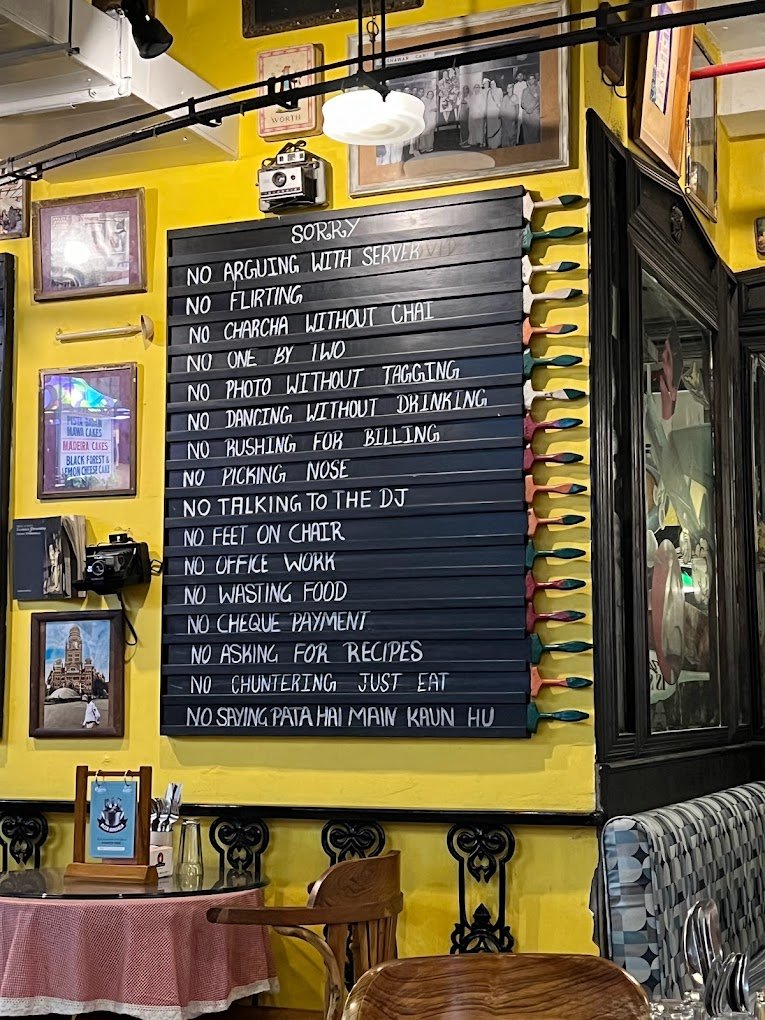 WORTH
SORRY
NO ARGUING WITH SERVER
NO FLIRTING
NO CHARCHA WITHOUT CHAI
NO ONE BY TWO
NO PHOTO WITHOUT TAGGING
NO DANCING WITHOUT DRINKING
NO RUSHING FOR BILLING
NO PICKING NOSE
NO TALKING TO THE DJ
NO FEET ON CHAIR
NO OFFICE WORK
NO WASTING FOOD
NO CHEQUE PAYMENT
NO ASKING FOR RECIPES
NO CHUNTERING JUST EAT
NO SAYING PATA HAI MAIN KAUN HU
MAWA CAKES
MADEIRA CAKES
BLACK FOREST &
LEMON CHEESE CAKE